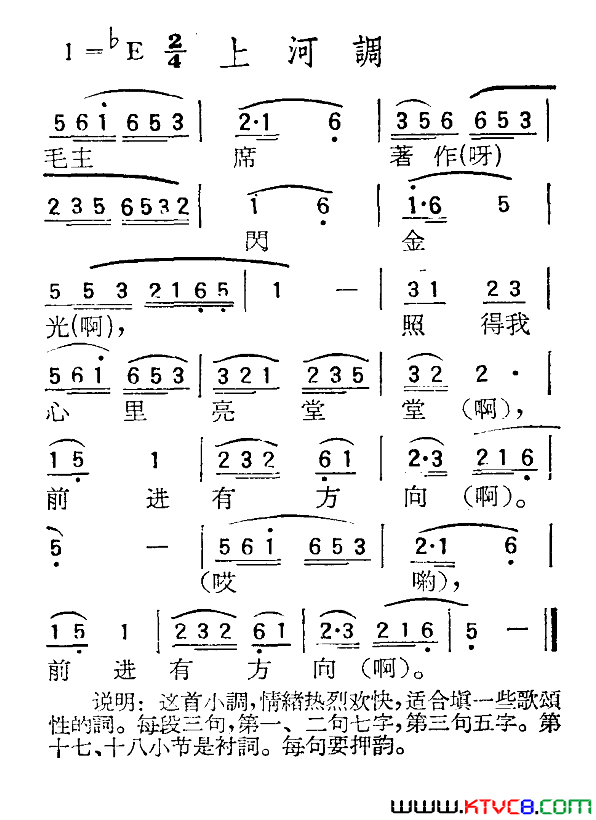 1=♭E 2/4 上河調
5 6 i 6 5 3 | 2·1 6 | 3 5 6 6 5 3 |
毛主 席 著作(呀)
2 3 5 6 5 3 2 | i 6 | i·6 5
閃 金
5 5 3 2 1 6 5 | 1 — | 3 1 2 3 |
光(啊), 照 得我
5 6 i 6 5 3 | 3 2 1 2 3 5 | 3 2 2 · |
心 里 亮 堂 堂 (啊),
1 5 1 | 2 3 2 6 1 | 2·3 2 1 6 |
前 进 有 方 向 (啊)。
5 — | 5 6 i 6 5 3 | 2·1 6 |
(哎 喲),
1 5 1 | 2 3 2 6 1 | 2·3 2 1 6 | 5 — ‖
前 进 有 方 向 (啊)。
说明: 这首小調,情緒热烈欢快,适合填一些歌頌
性的詞。每段三句,第一、二句七字,第三句五字。第
十七、十八小节是衬詞。每句要押韵。
www.KTVC8.com